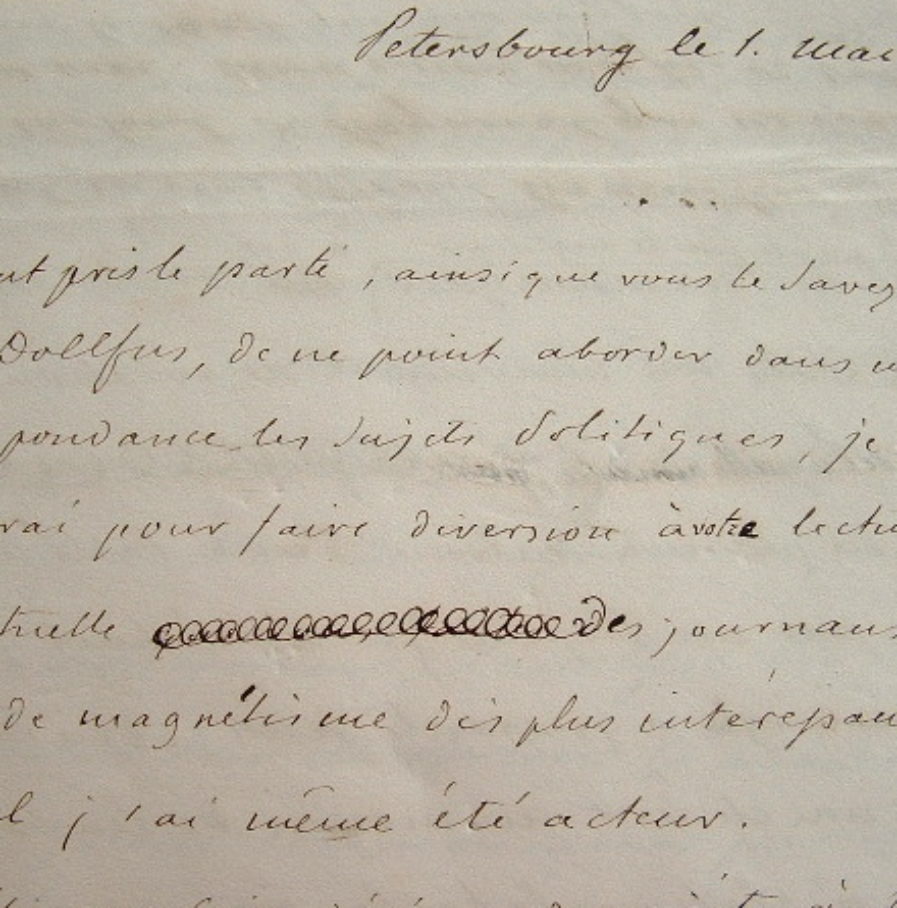 Petersbourg le 1. Mai
ut pris le parti, ainsi que vous le savez
Dollfus, de ne point aborder dans
pondance les sujets politiques, je
rai pour faire diversion à votre lectu
tuelle des journaux
de magnétisme des plus intéressan
l j'ai même été acteur.